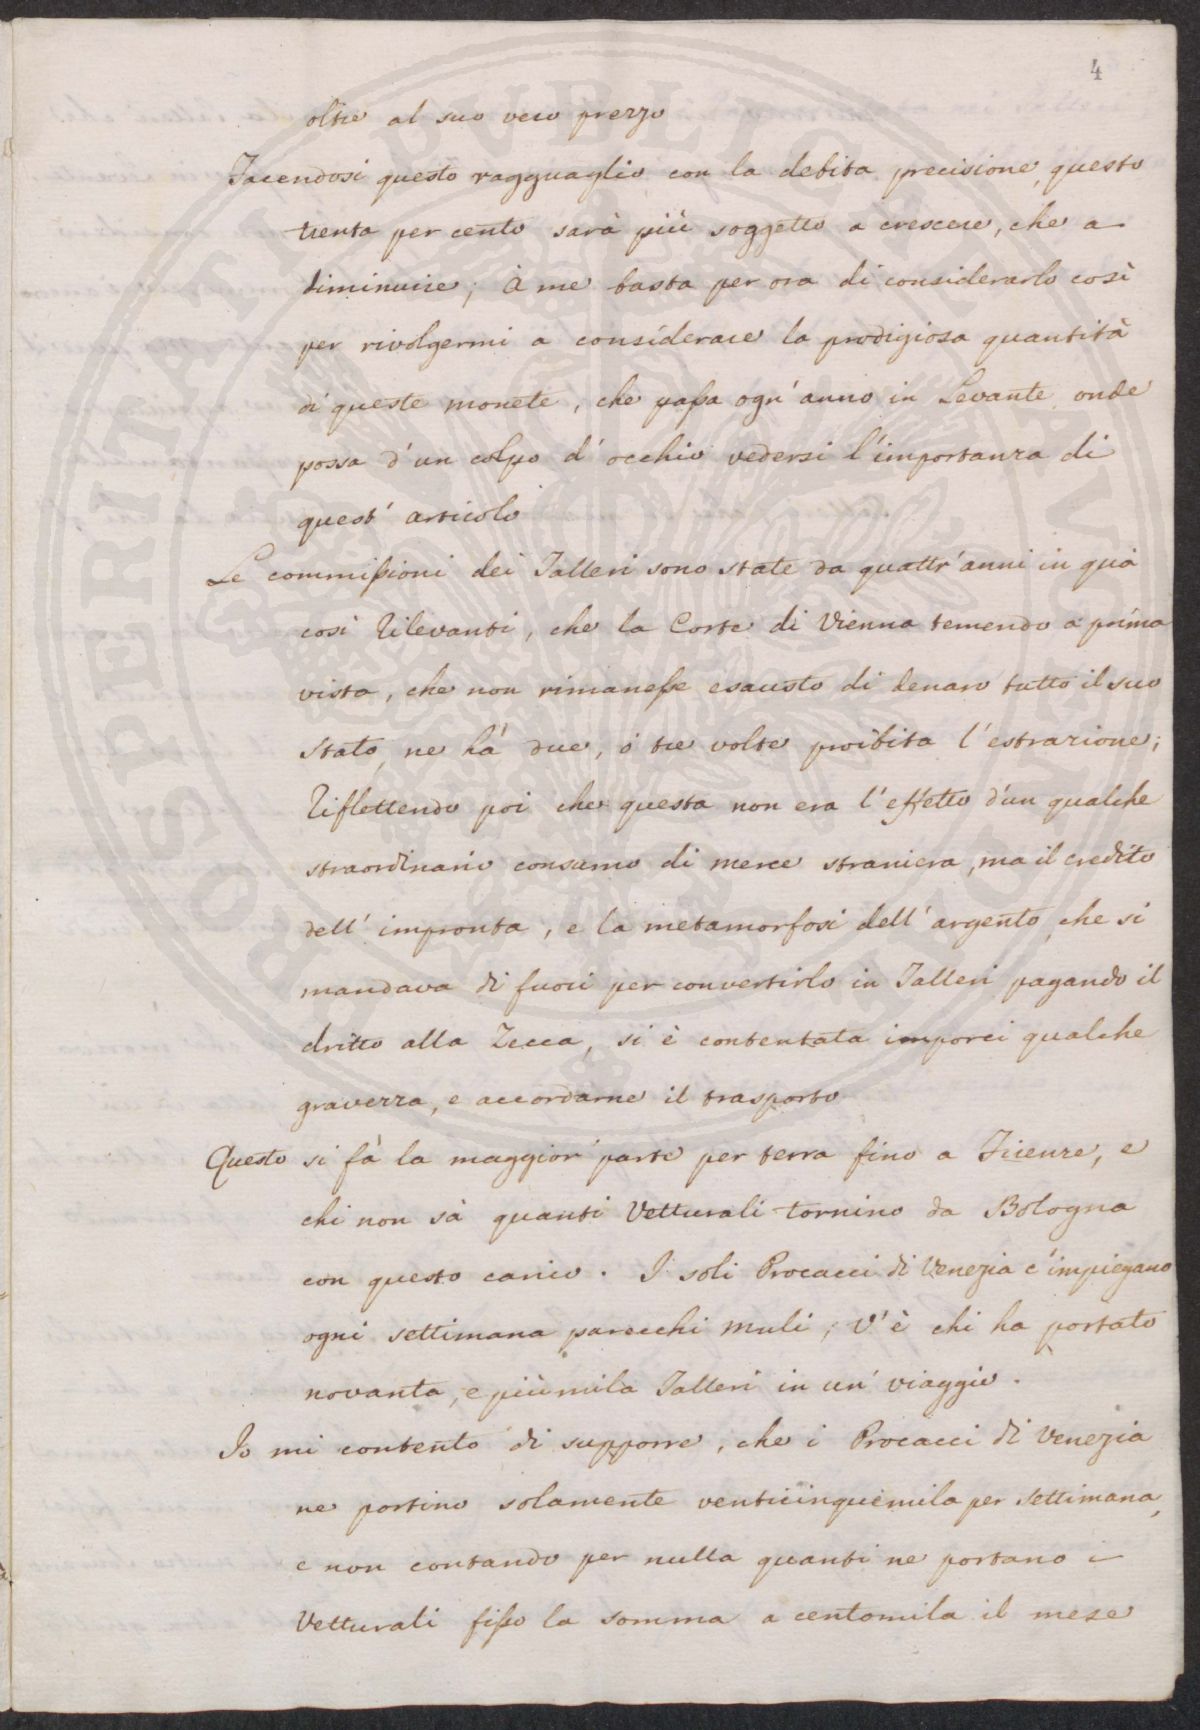 4
oltre al suo vero prezzo
Facendosi questo ragguaglio con la debita precisione, questo
trenta per cento sarà più soggetto a crescere, che a
diminuire; À me basta per ora di considerarlo così
per rivolgermi a considerare la prodigiosa quantità
di queste monete, che passa ogn' anno in Levante, onde
possa d' un colpo d' occhio vedersi l' importanza di
quest' articolo
Le commissioni dei Talleri sono state da quattr' anni in quà
così rilevanti, che la Corte di Vienna temendo a prima
vista, che non rimanesse esausto di denaro tutto il suo
Stato, ne há due, ó tre volte proibita l' estrazione;
Riflettendo poi che questa non era l' effetto d'un qualche
straordinario consumo di merce straniera, ma il credito
dell' impronta, e la metamorfosi dell' argento, che si
mandava di fuori per convertirlo in Talleri pagando il
dritto alla Zecca, si è contentata imporci qualche
gravezza, e accordarne il trasporto
Questo si fà la maggior parte per terra fino a Firenze, e
chi non sà quanti Vetturali tornino da Bologna
con questo carico. I soli Procacci di Venezia c'impiegano
ogni settimana parecchi muli; V' è chi ha portato
novanta, e più mila Talleri in un' viaggio.
Io mi contento di supporre, che i Procacci di Venezia
ne portino solamente venticinquemila per settimana,
e non contando per nulla quanti ne portano i
Vetturali fisso la somma a centomila il mese
PROSPERITATI PUBLICAE AUGENDAE